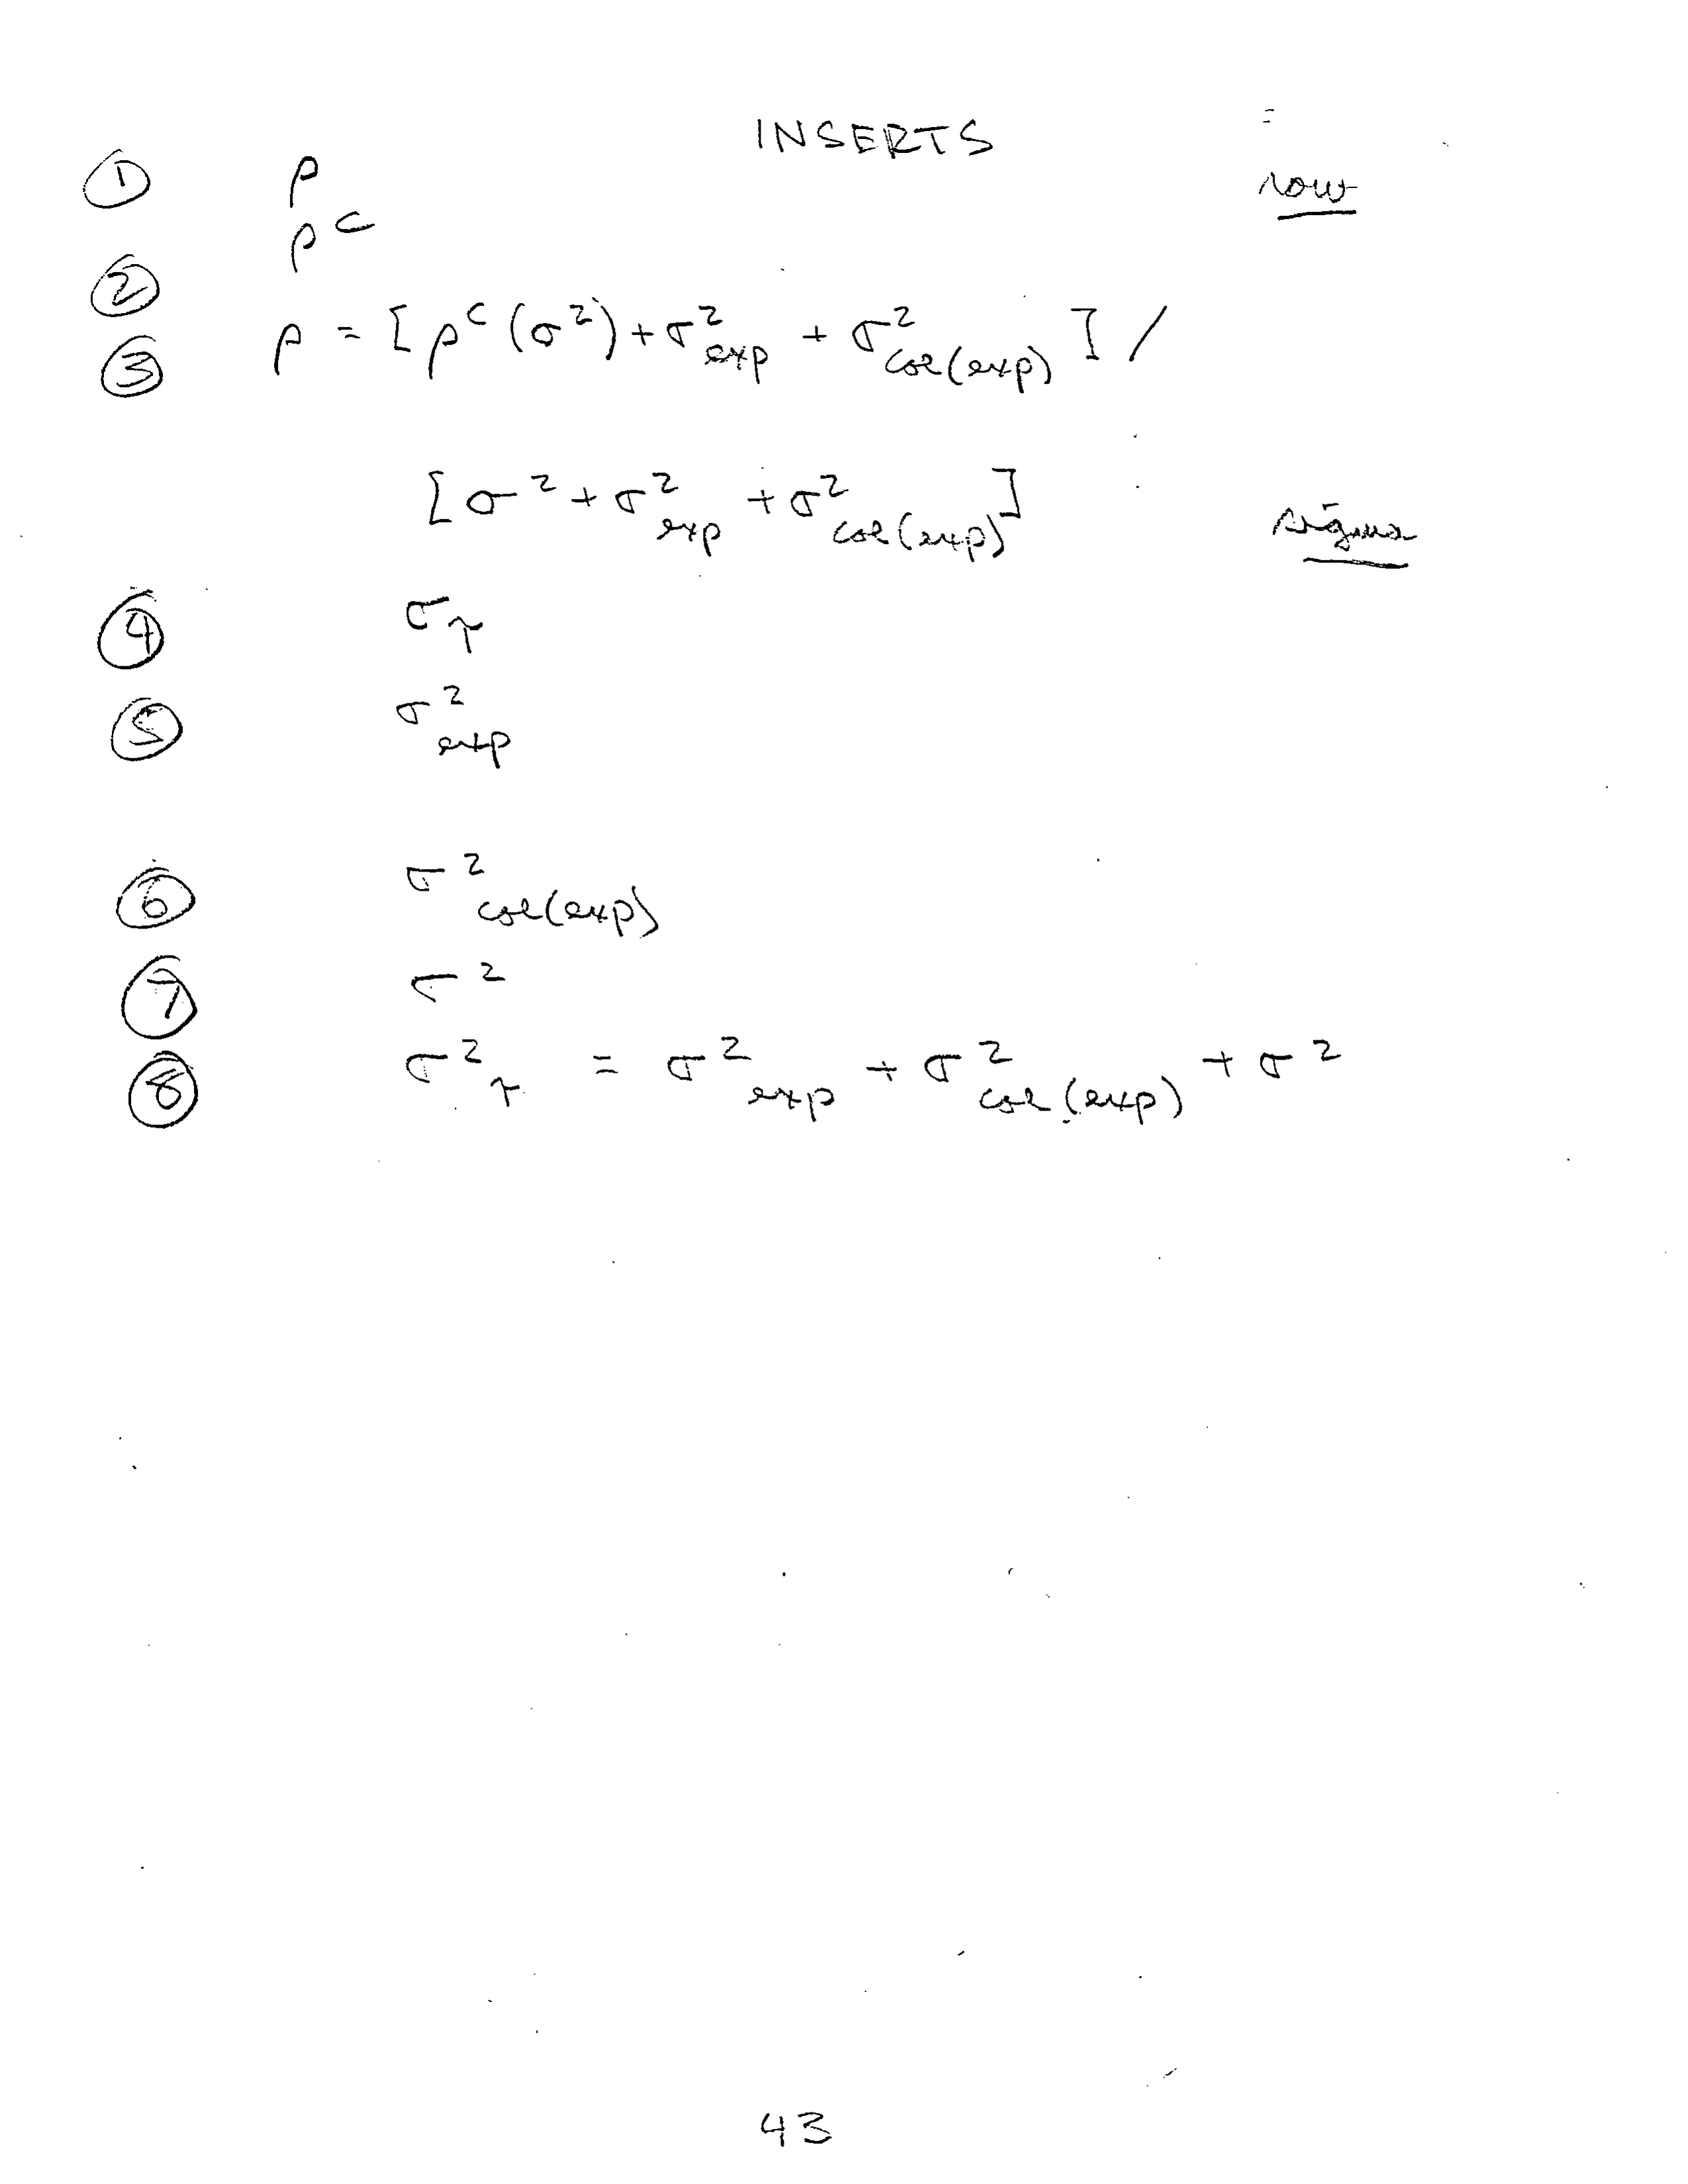 INSERTS
① ρ row
ρ^c
②
③ ρ = [ρ^c (σ²) + σ²_exp + σ²_col(exp)] /
[σ² + σ²_exp + σ²_col(exp)]
sigma
④ σ_T
⑤ σ²_exp
⑥ σ²_col(exp)
⑦ σ²
⑧ σ²_T = σ²_exp + σ²_col(exp) + σ²
43